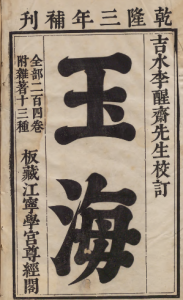 乾隆三年補刊
吉水李醒齋先生校訂
玉海
全部二百四卷
附雜著十三種
板藏江寧學宮尊經閣